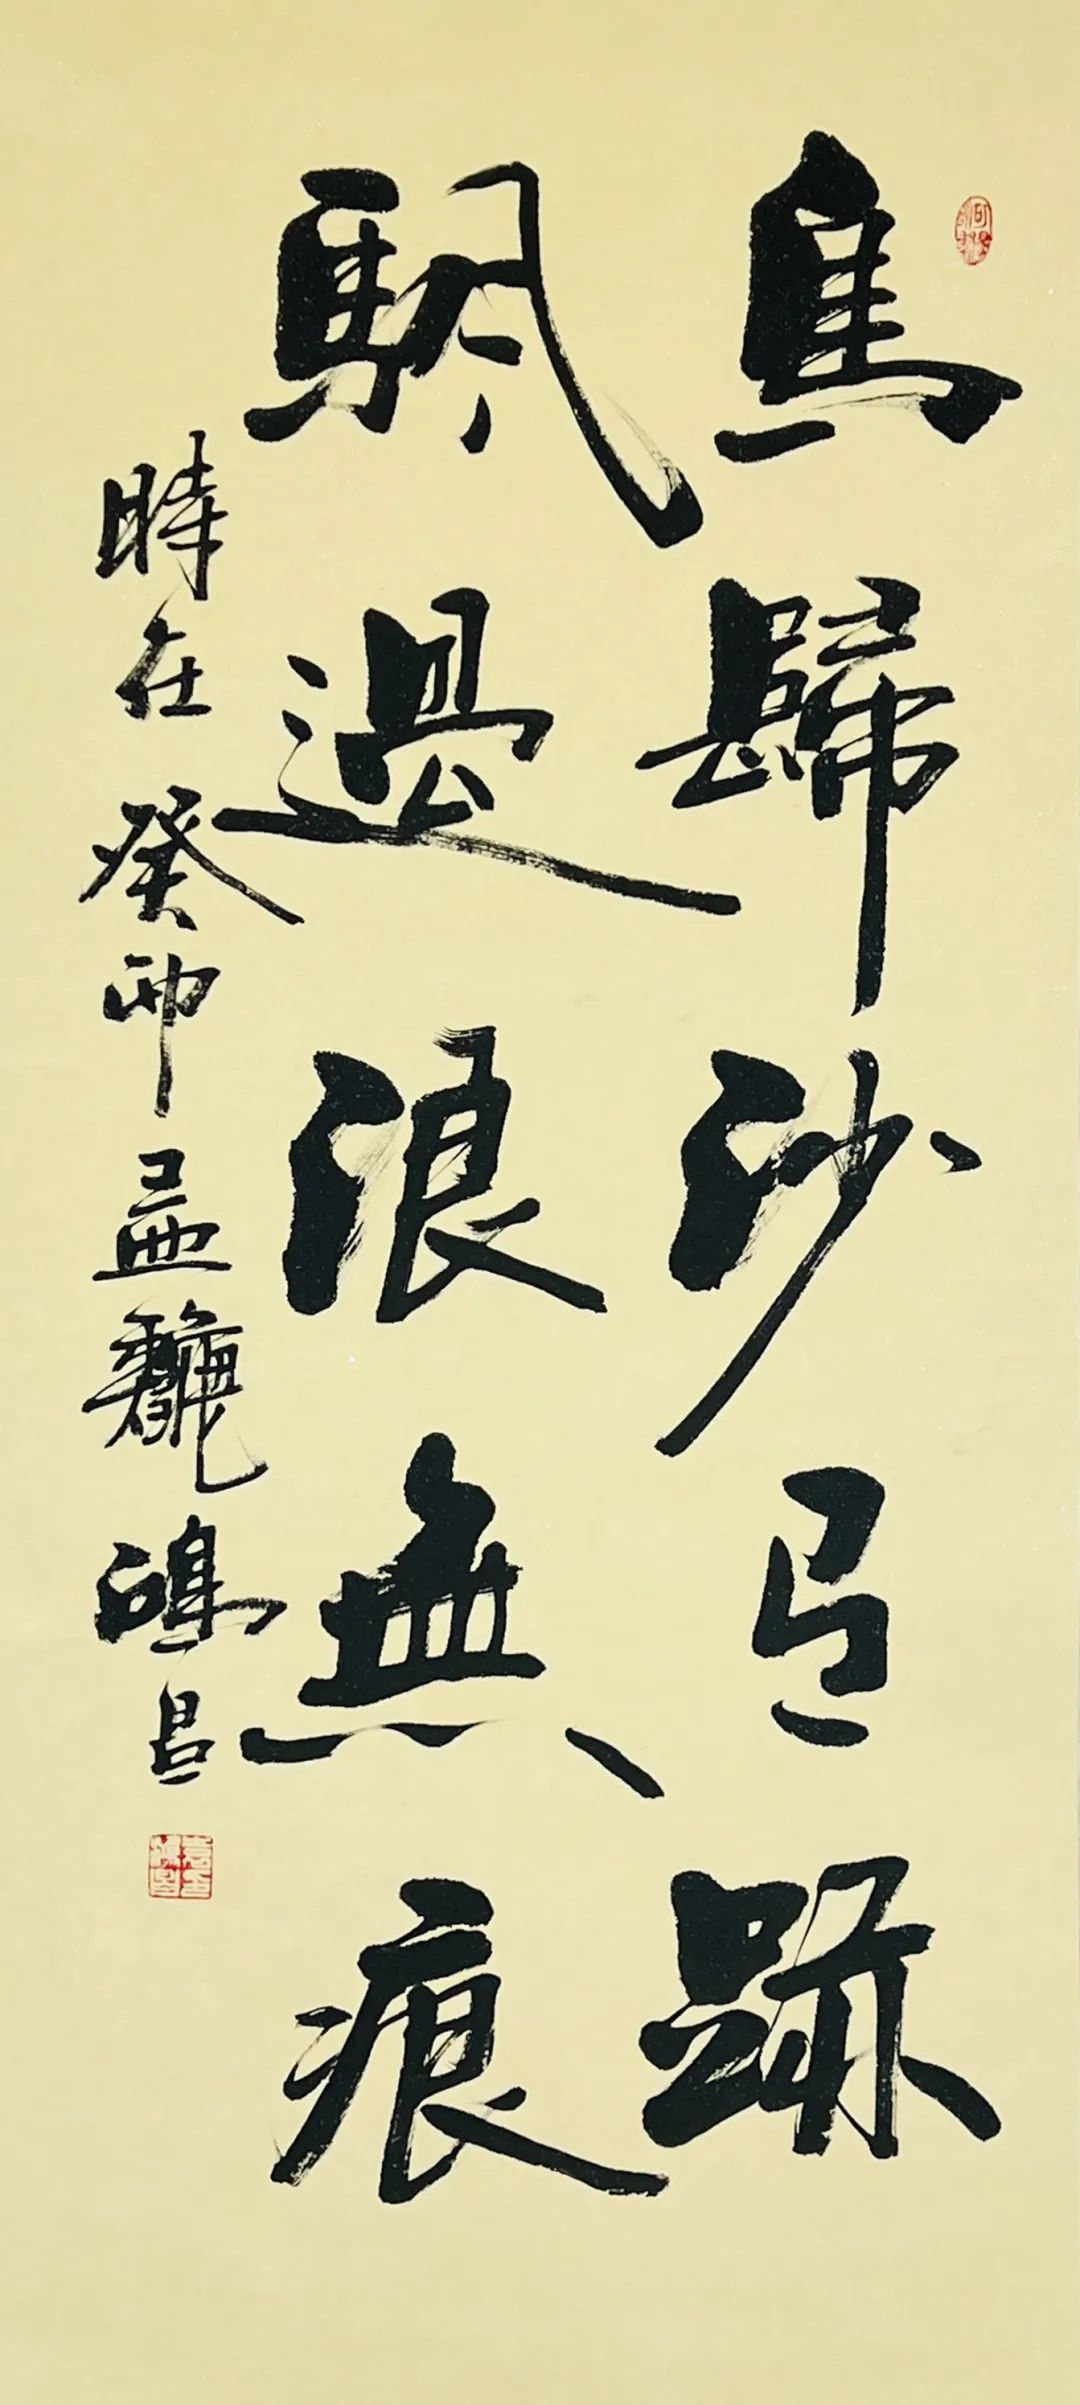 鳥歸沙有跡
颿過浪無痕
時在癸卯孟龝鴻昌